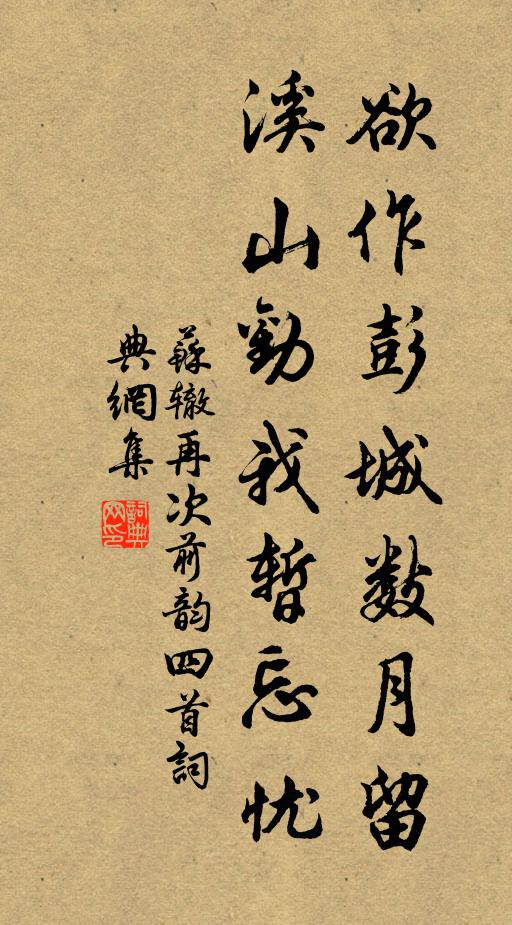 欲作彭城数月留
溪山勸我暫忘忧
蘇辙再次前韵四首詞
典網集
詞典网印